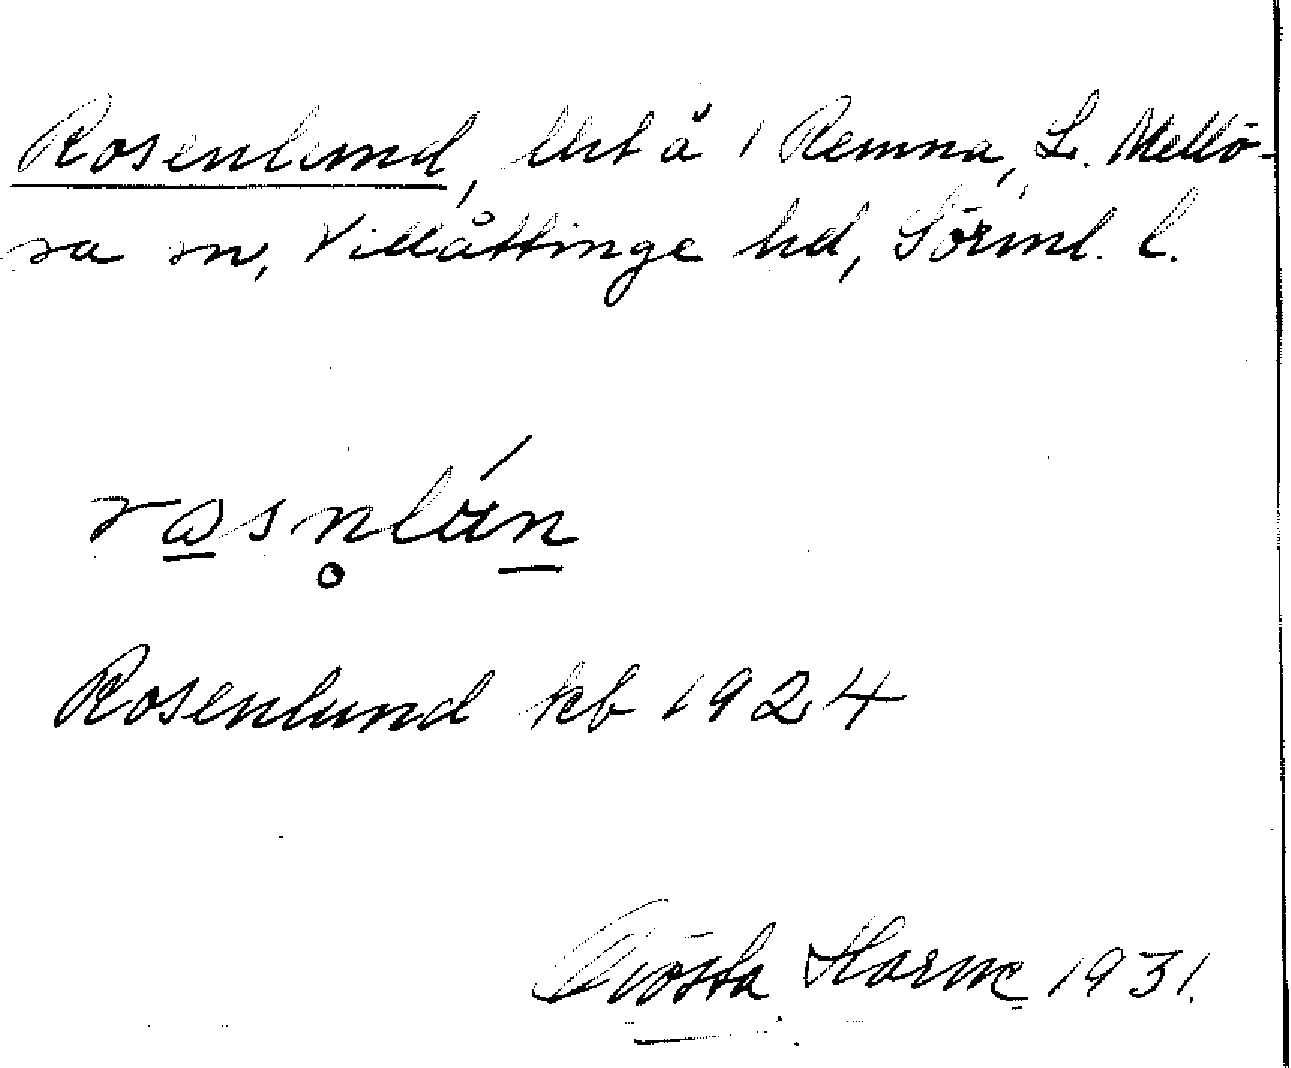 Rosenlund, lht å 1 Remna, L. Mellö-
sa sn, Villåttinge hd, Sörml. l.
rosn̥lún
Rosenlund kb 1924
Gösta Horne 1931.